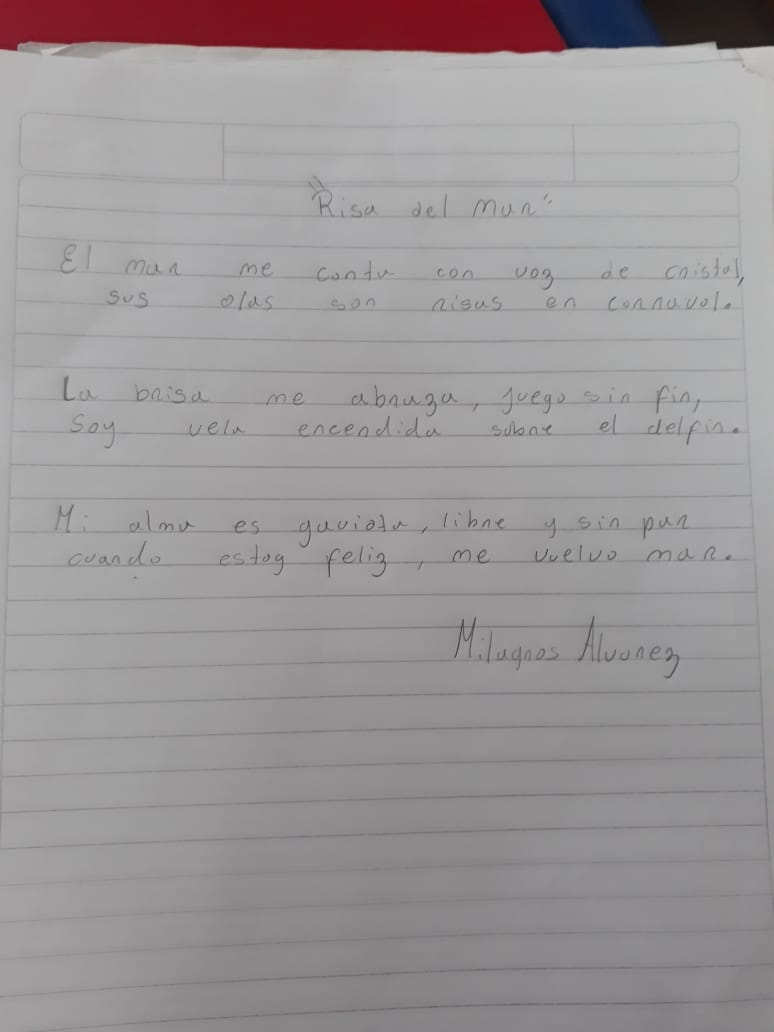 "Risa del mar"
El mar me canta con voz de cristal,
sus olas son risas en carnaval.
La brisa me abraza, juego sin fin,
Soy vela encendida sobre el delfín.
Mi alma es gaviota, libre y sin par
cuando estoy feliz, me vuelvo mar.
Milagros Alvarez